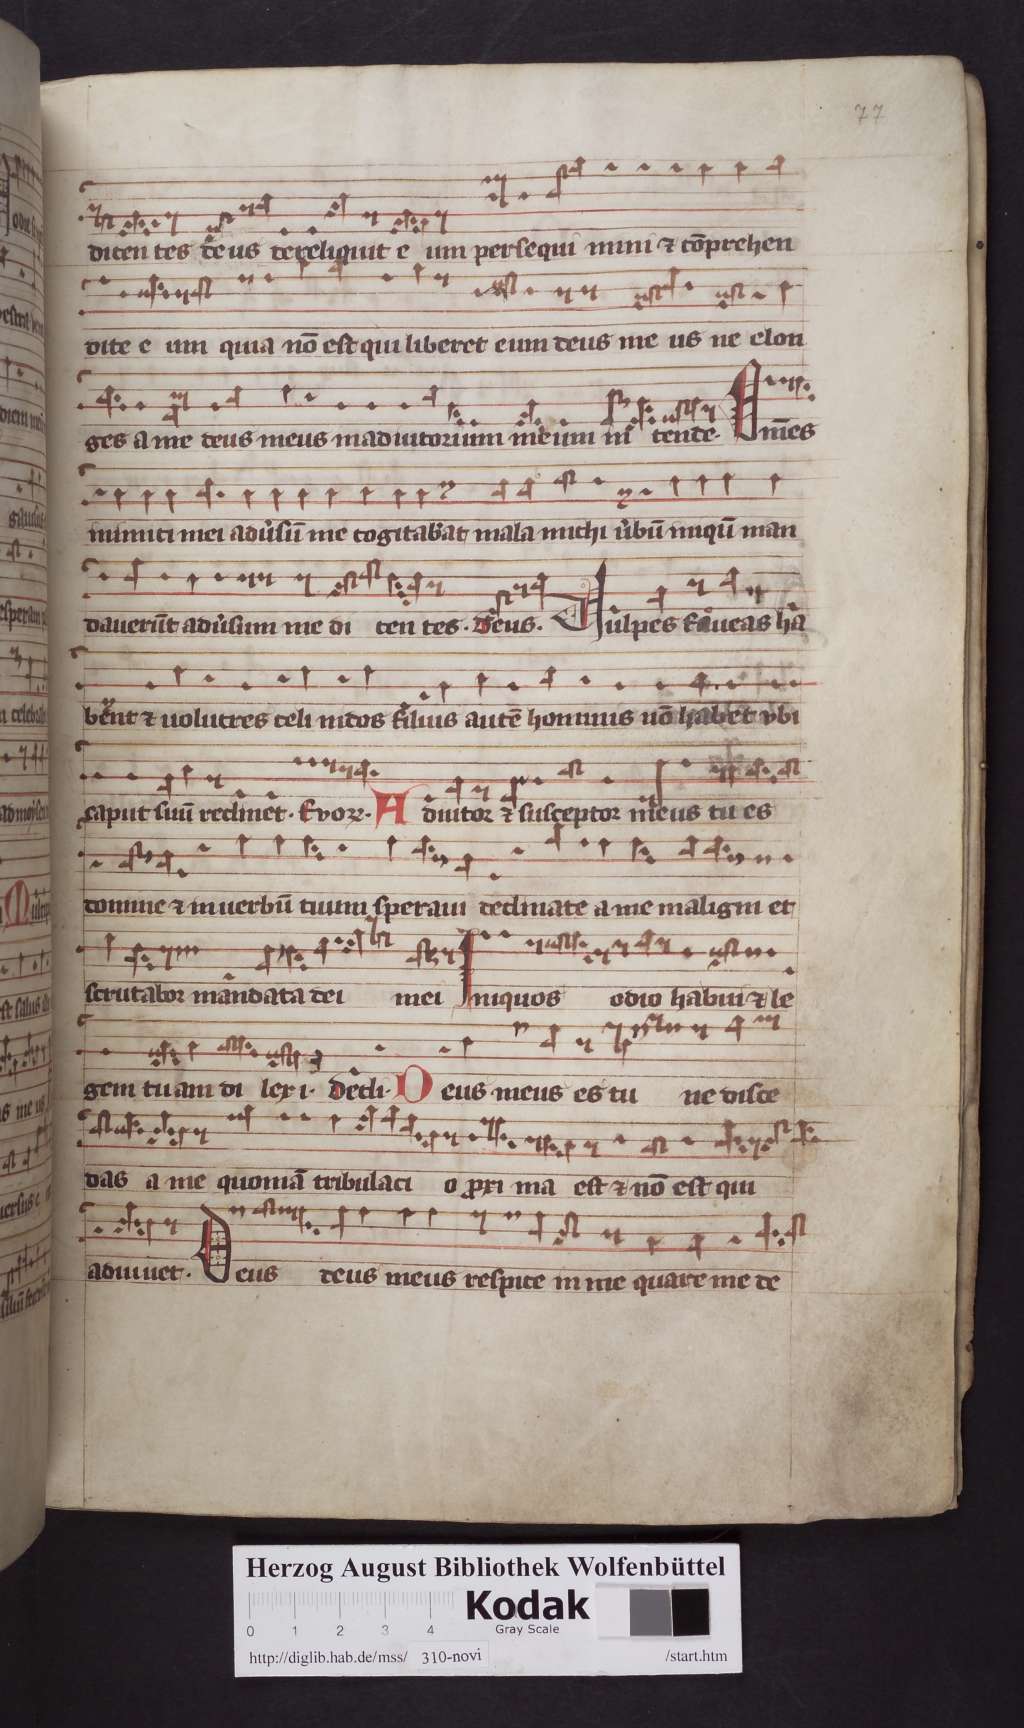 77
dicen tes deus dereliquit e um persequi mini ⁊ cōprehen
dite e um quia nō est qui liberet eum deus me us ne elon
ges a me deus meus in adiutorium meum in tende. Om̄es
inimici mei adu̓sū me cogitabāt mala michi u̓bū iniqū man
dauerūt adu̓sum me di cen tes. deus. Uulpes foueas ha
bent ⁊ uolucres celi nidos filius autē hominis nō habet vbi
caput suū reclinet. Evoꝝ. Adiutor ⁊ susceptor meus tu es
domine ⁊ in uerbū tuum speraui declinate a me maligni et
scrutabor mandata dei mei Iniquos odio habui ⁊ le
gem tuam di lexi. decli. Deus meus es tu ne disce
das a me quoniā tribulaci o ꝓxi ma est ⁊ nō est qui
adiuuet. Deus deus meus respice in me quare me de
Herzog August Bibliothek Wolfenbüttel
Kodak
Gray Scale
0 1 2 3 4
http://diglib.hab.de/mss/ 310-novi /start.htm